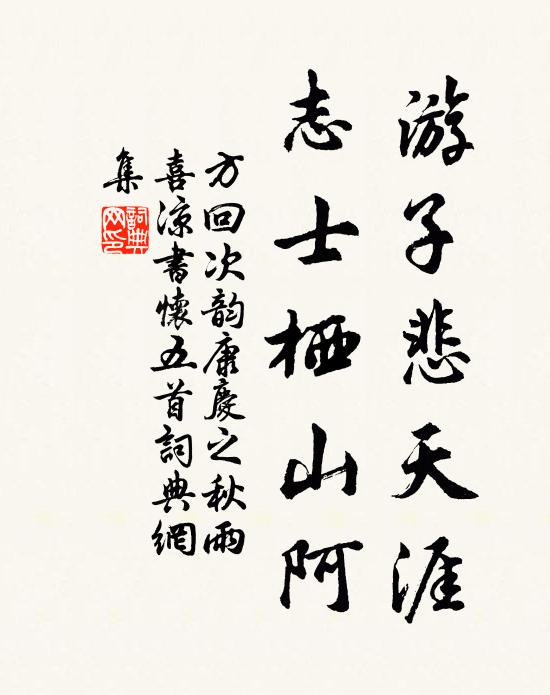 游子悲天涯
志士栖山阿
方回次韵康慶之秋雨
喜凉書懷五首詞典網
集
詞典網印